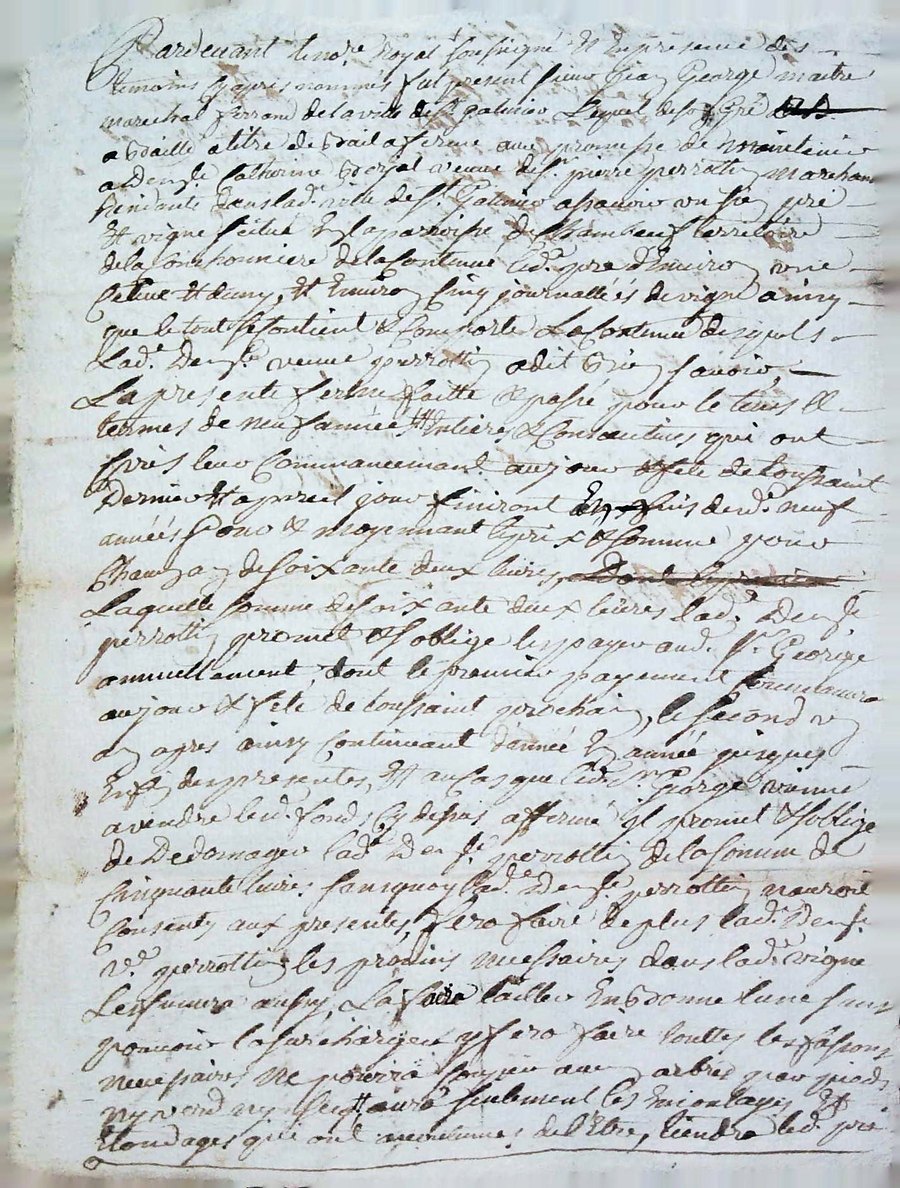 Pardevant le no.re Royal soussigné & En presence des
temoins cy apres nommés fut present sieur Jean George maitre
marechal ferrant de la ville de St galmier Lequel de son gré
a baillé a titre de bail a ferme avec promesse de maintenir
a Den.lle Catherine veuve de Sr. pierre perrottin marchand
residante dans lad.e ville de St. Galmier a scavoir un pré
Et vigne scitué En la parroisse de Chambeuf territoire
de la de la Contenue led. pre d'Environ une
& demy, Et Environ Cinq journallées de vigne ainsy
que le tout se Contient & Comporte La Contenue desquels
Lad.e Den.lle veuve perrottin a dit bien scavoir,
La presente ferme faitte & passé pour le tems &
termes de neuf années Entieres & Consecutives qui ont
pris leur Commancement au jour & fete de toussaint
Dernier Et a pareil jour finiront lesd. neuf
années pour & moyennant le prix & somme pour
Chaq'un an de soixante deux livres,
Laquelle somme de soixante deux livres lad.e Den.lle
perrottin promet & s'oblige de payer aud. Sr. George
annuellement, dont le premier payement Commancera
au jour & fete de toussaint prochain, le second un
an apres ainsy Continuant d'année En année jusques
En fin des presentes, Et au Cas que led. Sr. George vienne
a vendre led. fonds Cy depuis affermé il promet & s'oblige
de Dedomager lad.e Den.lle perrottin de la somme de
Cinquante livres sans quoy lad.e Den.lle perrottin n'auroit
Consenty aux presentes, fera faire de plus lad.e Den.lle
v.e perrottin les provins necessaires dans lad.e vigne
Les fumera aussy, La faira tailler En bonne lune sans
pouvoir la surcharger y fera faire touttes les fasons
necessaires ne pourra Couper aucun arbres par pieds
ny verd ny sec Et aura seulement les Emontages Et
Elondages qui ont accoutumés de l'Etre, tiendra led. pré